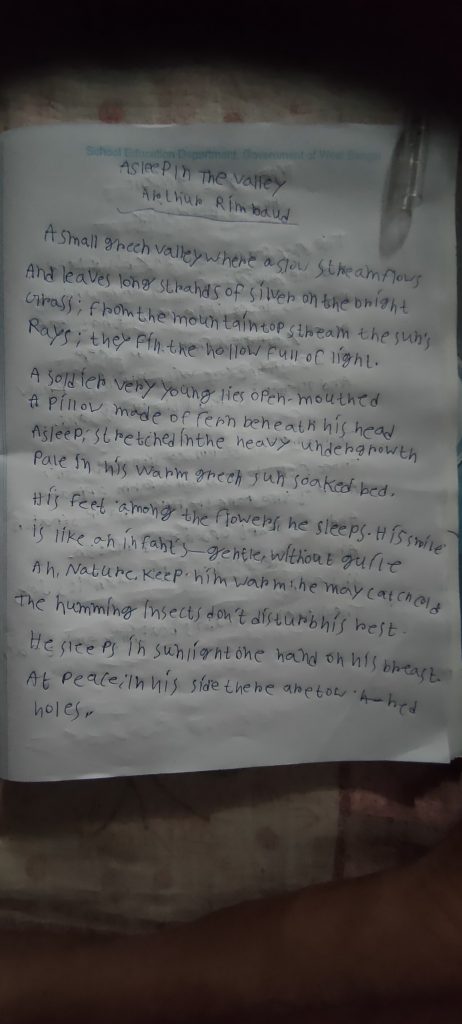 School Education Department, Government of West Bengal
Asleep in The valley
Arthur Rimbaud
A small green valley where a slow stream flows
And leaves long strands of silver on the bright
Grass; from the mountaintop stream the sun's
Rays; they fill the hollow full of light.
A soldier very young lies open-mouthed
A pillow made of fern beneath his head
Asleep, stretched in the heavy undergrowth
Pale in his warm green sun soaked bed.
His feet among the flowers, he sleeps. His smile
is like an infant's - gentle, without guile
Ah, Nature, keep him warm: he may catch cold
The humming insects don't disturb his rest.
He sleeps in sunlight one hand on his breast.
At peace; in his side there are tow A-red
holes,